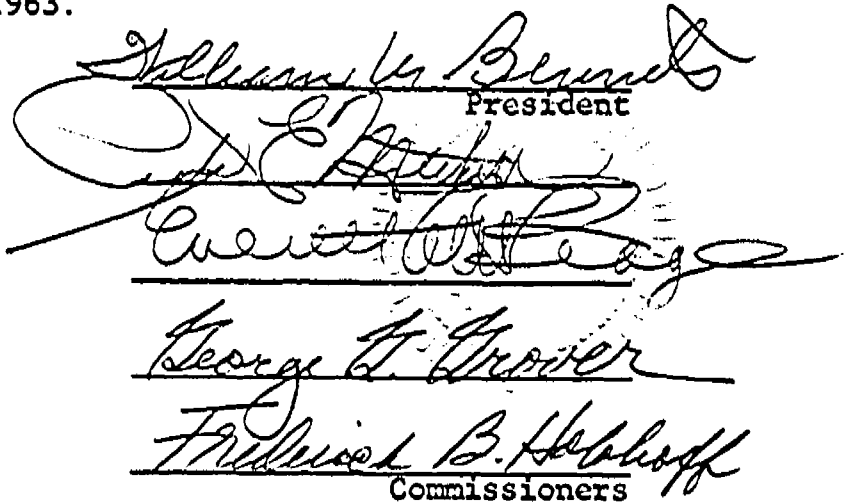 1963.
William M. Bennett
President
E. Mitchell
Everett C. McKeage
George G. Grover
Frederick B. Holoboff
Commissioners